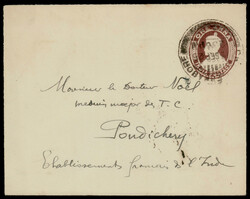 Monsieur le Docteur Noël
médecin major des T. C.
Pondichery
Etablissements français de l'Inde